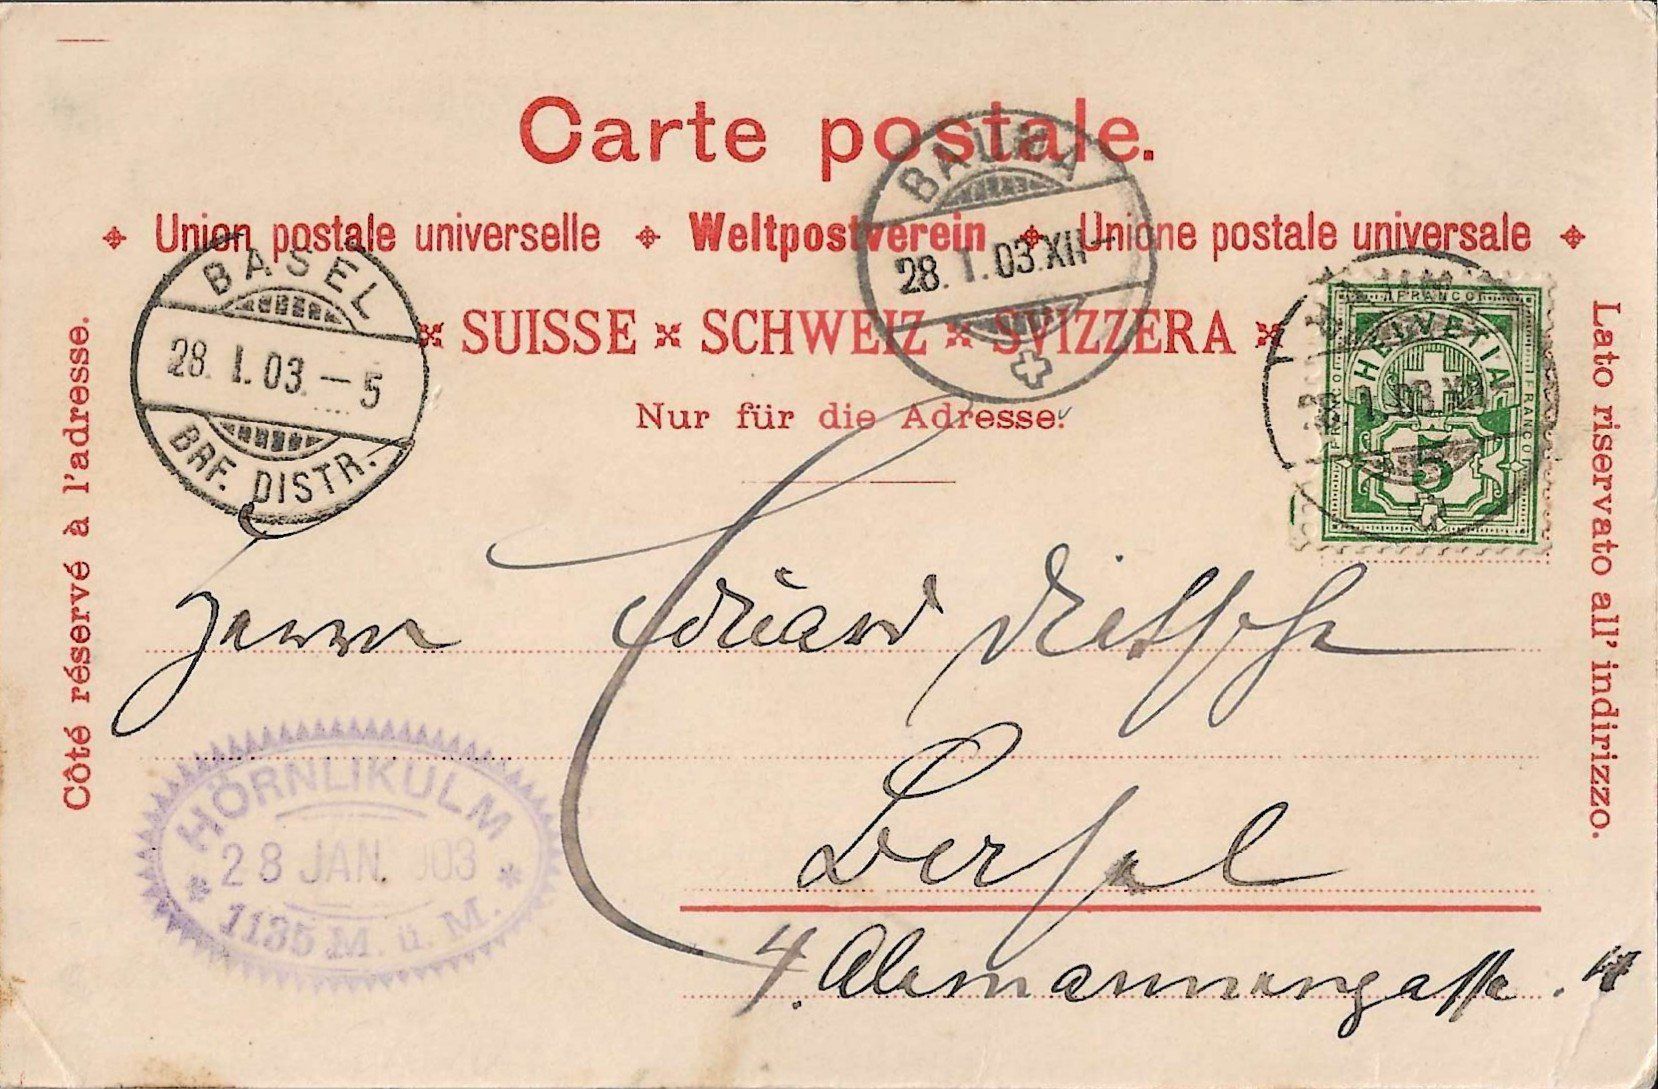 Carte postale.
Union postale universelle Weltpostverein Unione postale universale
SUISSE SCHWEIZ SVIZZERA
Nur für die Adresse.
Côté réservé à l'adresse.
Lato riservato all' indirizzo.
BAUMA
28. I. 03. XII –
BASEL
28. I. 03. – 5
BRF. DISTR.
FRANCO
HELVETIA
FRANCO
5
Herrn Eduard Dietschi
Basel
4. Alemannengasse. 4
HÖRNLIKULM
28 JAN. 903
1135 M. ü. M.